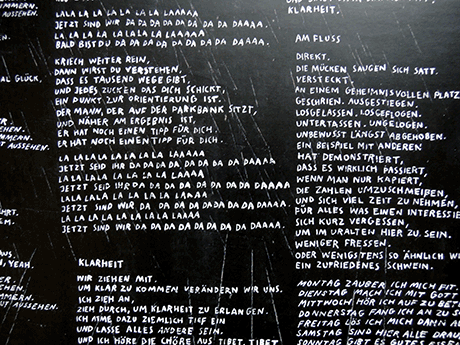 MMERN.
AUSSEHEN.
AL GLÜCK,
IMMERN.
MMERN.
T AUSSEHEN.
ÜHRT.
EN, YEAH.
MMERN.
MMERN.
AUSSEHEN.
LALA LA LA LA LA LA LAAAAA
JETZT SIND WIR DA DA DA DA DA DA DA DAAAA.
LA LA LA LA LA LA LA LAAAAA
BALD BIST DU DA DA DA DA DA DA DA DAAAA.
KRIECH WEITER REIN,
DANN WIRST DU VERSTEHEN,
DASS ES TAUSEND WEGE GIBT,
UND JEDES ZUCKEN DAS DICH SCHICKT,
EIN PUNKT ZUR ORIENTIERUNG IST.
DER MANN, DER AUF DER PARKBANK SITZT,
UND NÄHER AM ERGEBNIS IST,
ER HAT NOCH EINEN TIPP FÜR DICH.
ER HAT NOCH EINEN TIPP FÜR DICH.
LA LA LA LA LA LA LA LAAAAA
JETZT SEID IHR DA DA DA DA DA DA DA DAAAA
LA LA LA LA LA LA LA LAAAAA
JETZT SEID IHR DA DA DA DA DA DA DA DAAAAA
LA LA LA LA LA LA LA LAAAAA
JETZT SIND WIR DA DA DA DA DA DA DA DAAAAA.
LA LA LA LA LA LA LA LAAAAA
JETZT SIND WIR DA DA DA DA DA DA DA DAAAA.
KLARHEIT
WIR ZIEHEN MIT.
UM KLAR ZU KOMMEN VERÄNDERN WIR UNS.
ICH ZIEH AN,
ZIEH DURCH, UM KLARHEIT ZU ERLANGEN.
ICH ATME DAZU ZIEMLICH TIEF EIN
UND LASSE ALLES ANDERE SEIN.
UND ICH HÖRE DIE CHÖRE AUS TIBET. TIBET
KLARHEIT.
AM FLUSS
DIREKT.
DIE MÜCKEN SAUGEN SICH SATT.
VERSTECKT.
AN EINEM GEHEIMNISVOLLEN PLATZ
GESCHRIEN. AUSGESTIEGEN.
LOSGELASSEN. LOSGEFLOGEN.
UNTERTASSEN. UNGELOGEN.
UNBEWUSST LÄNGST ABGEHOBEN.
EIN BEISPIEL MIT ANDEREN
HAT DEMONSTRIERT,
DASS ES WIRKLICH PASSIERT,
WENN MAN NUR KAPIERT,
DIE ZAHLEN UMZUSCHMEIßEN,
UND SICH VIEL ZEIT ZU NEHMEN,
FÜR ALLES WAS EINEN INTERESSIE
SICH KURZ VERGESSEN,
UM IM URALTEN HIER ZU SEIN.
WENIGER FRESSEN.
ODER WENIGSTENS SO ÄHNLICH WI
EIN ZUFRIEDENES SCHWEIN.
MONTAG ZAUBER ICH MICH FIT.
DIENSTAG MACH ICH MIT GOTT
MITTWOCH HÖR ICH AUF ZU BETE
DONNERSTAG FANG ICH AN ZU
FREITAG LÖS ICH MICH DANN A
SAMSTAG SIND HIER ALLE DRAU
SONNTAG GIBT ES GUTES ESSEN